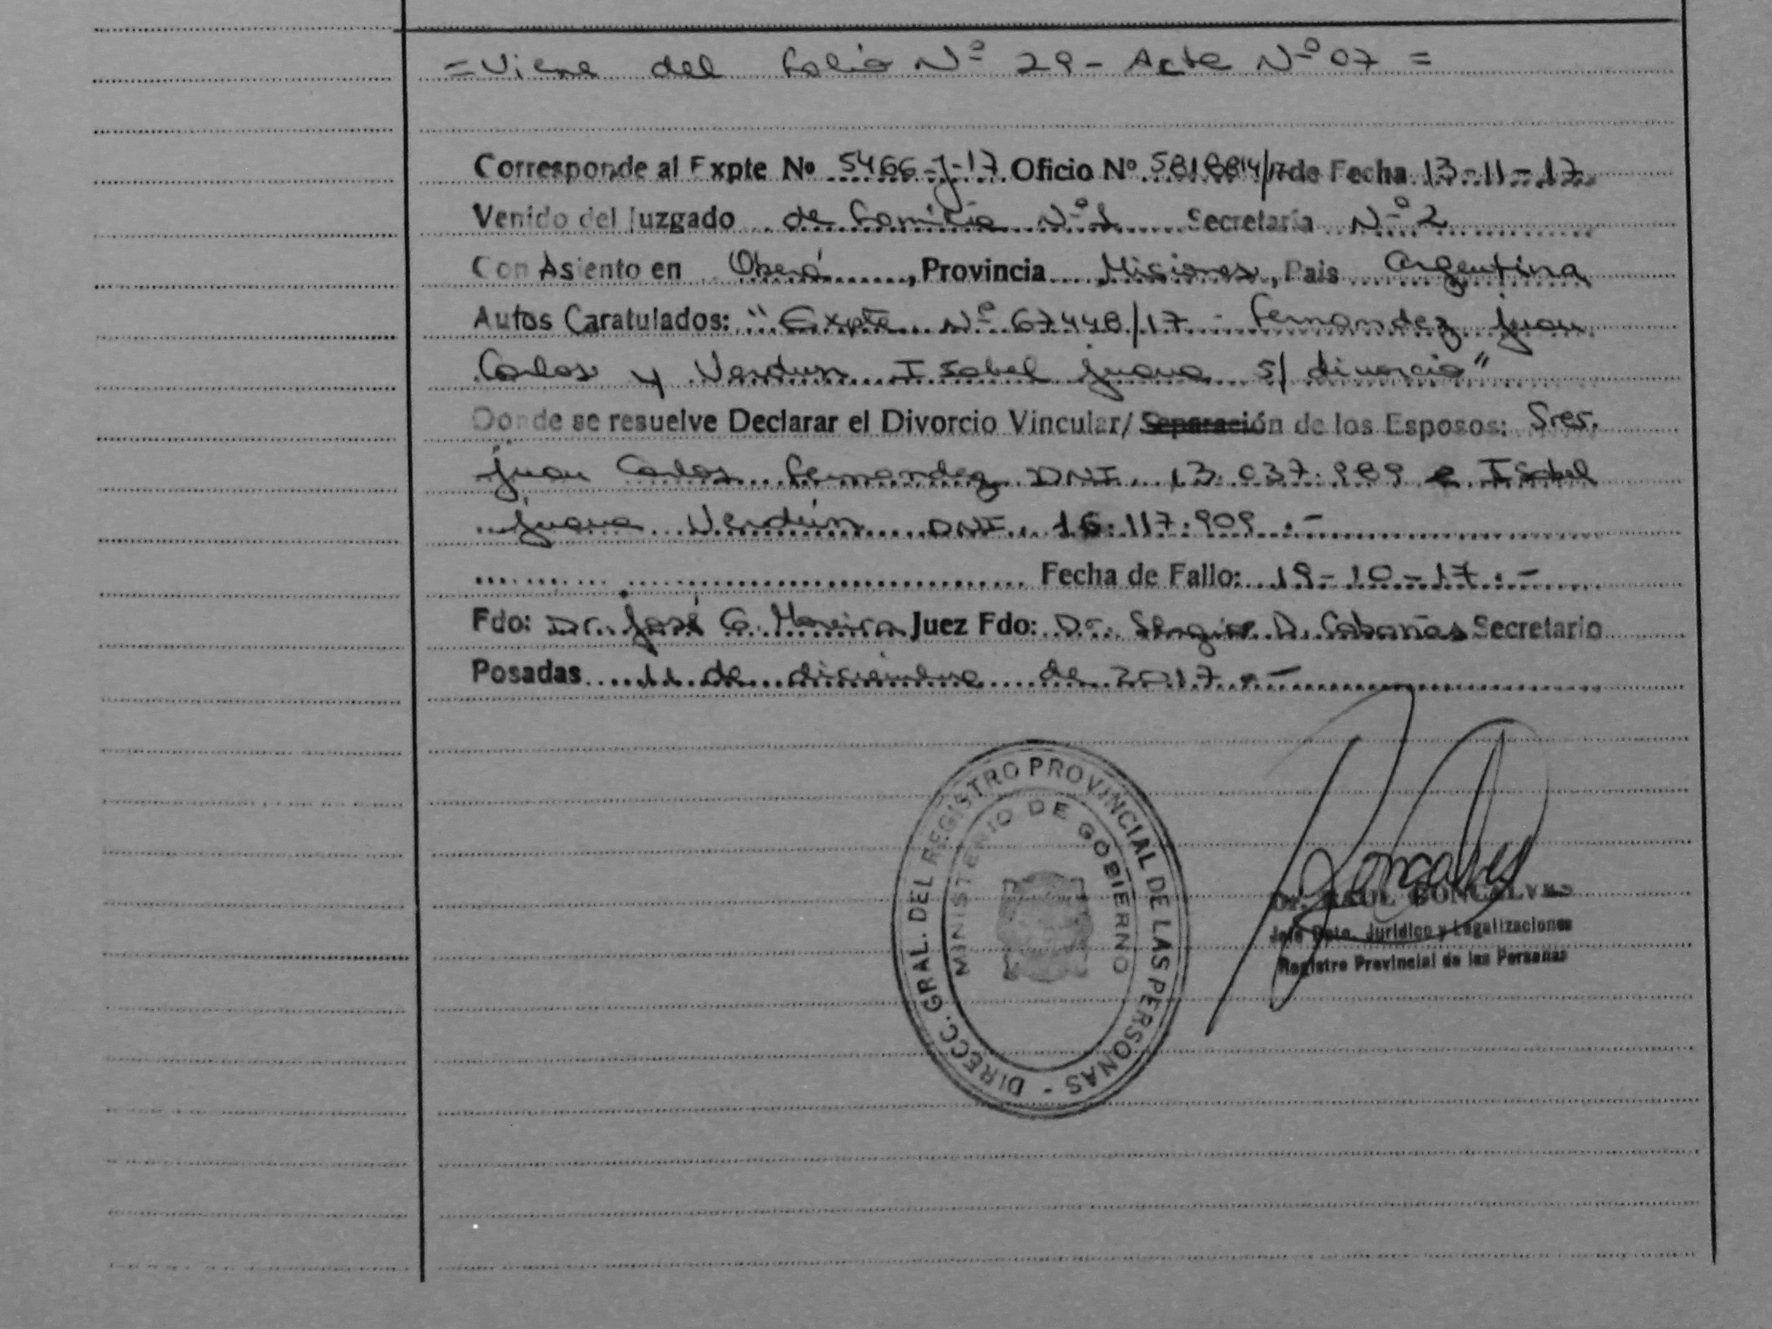 = Viene del folio Nº 29 - Acta Nº 07 =
Corresponde al Expte Nº 5466-J-17 Oficio Nº 5818814/17 de Fecha 13-11-17
Venido del Juzgado de Familia Nº 1 Secretaría Nº 2
Con Asiento en Oberá, Provincia Misiones, Pais Argentina
Autos Caratulados: "Expte Nº 67448/17 - Fernandez Juan
Carlos y Verdun Isabel Juana s/ divorcio"
Donde se resuelve Declarar el Divorcio Vincular/ Separación de los Esposos: Sres.
Juan Carlos Fernandez DNI. 13.037.989 e Isabel
Juana Verdún DNI. 16.117.909.-
Fecha de Fallo: 19-10-17.-
Fdo: Dr. José G. Moreira Juez Fdo: Dr. Sergio D. Cabañas Secretario
Posadas 11 de diciembre de 2017.-
DIRECC. GRAL. DEL REGISTRO PROVINCIAL DE LAS PERSONAS -
MINISTERIO DE GOBIERNO
Dr. RAUL GONCALVES
Jefe Dpto. Jurídico y Legalizaciones
Registro Provincial de las Personas